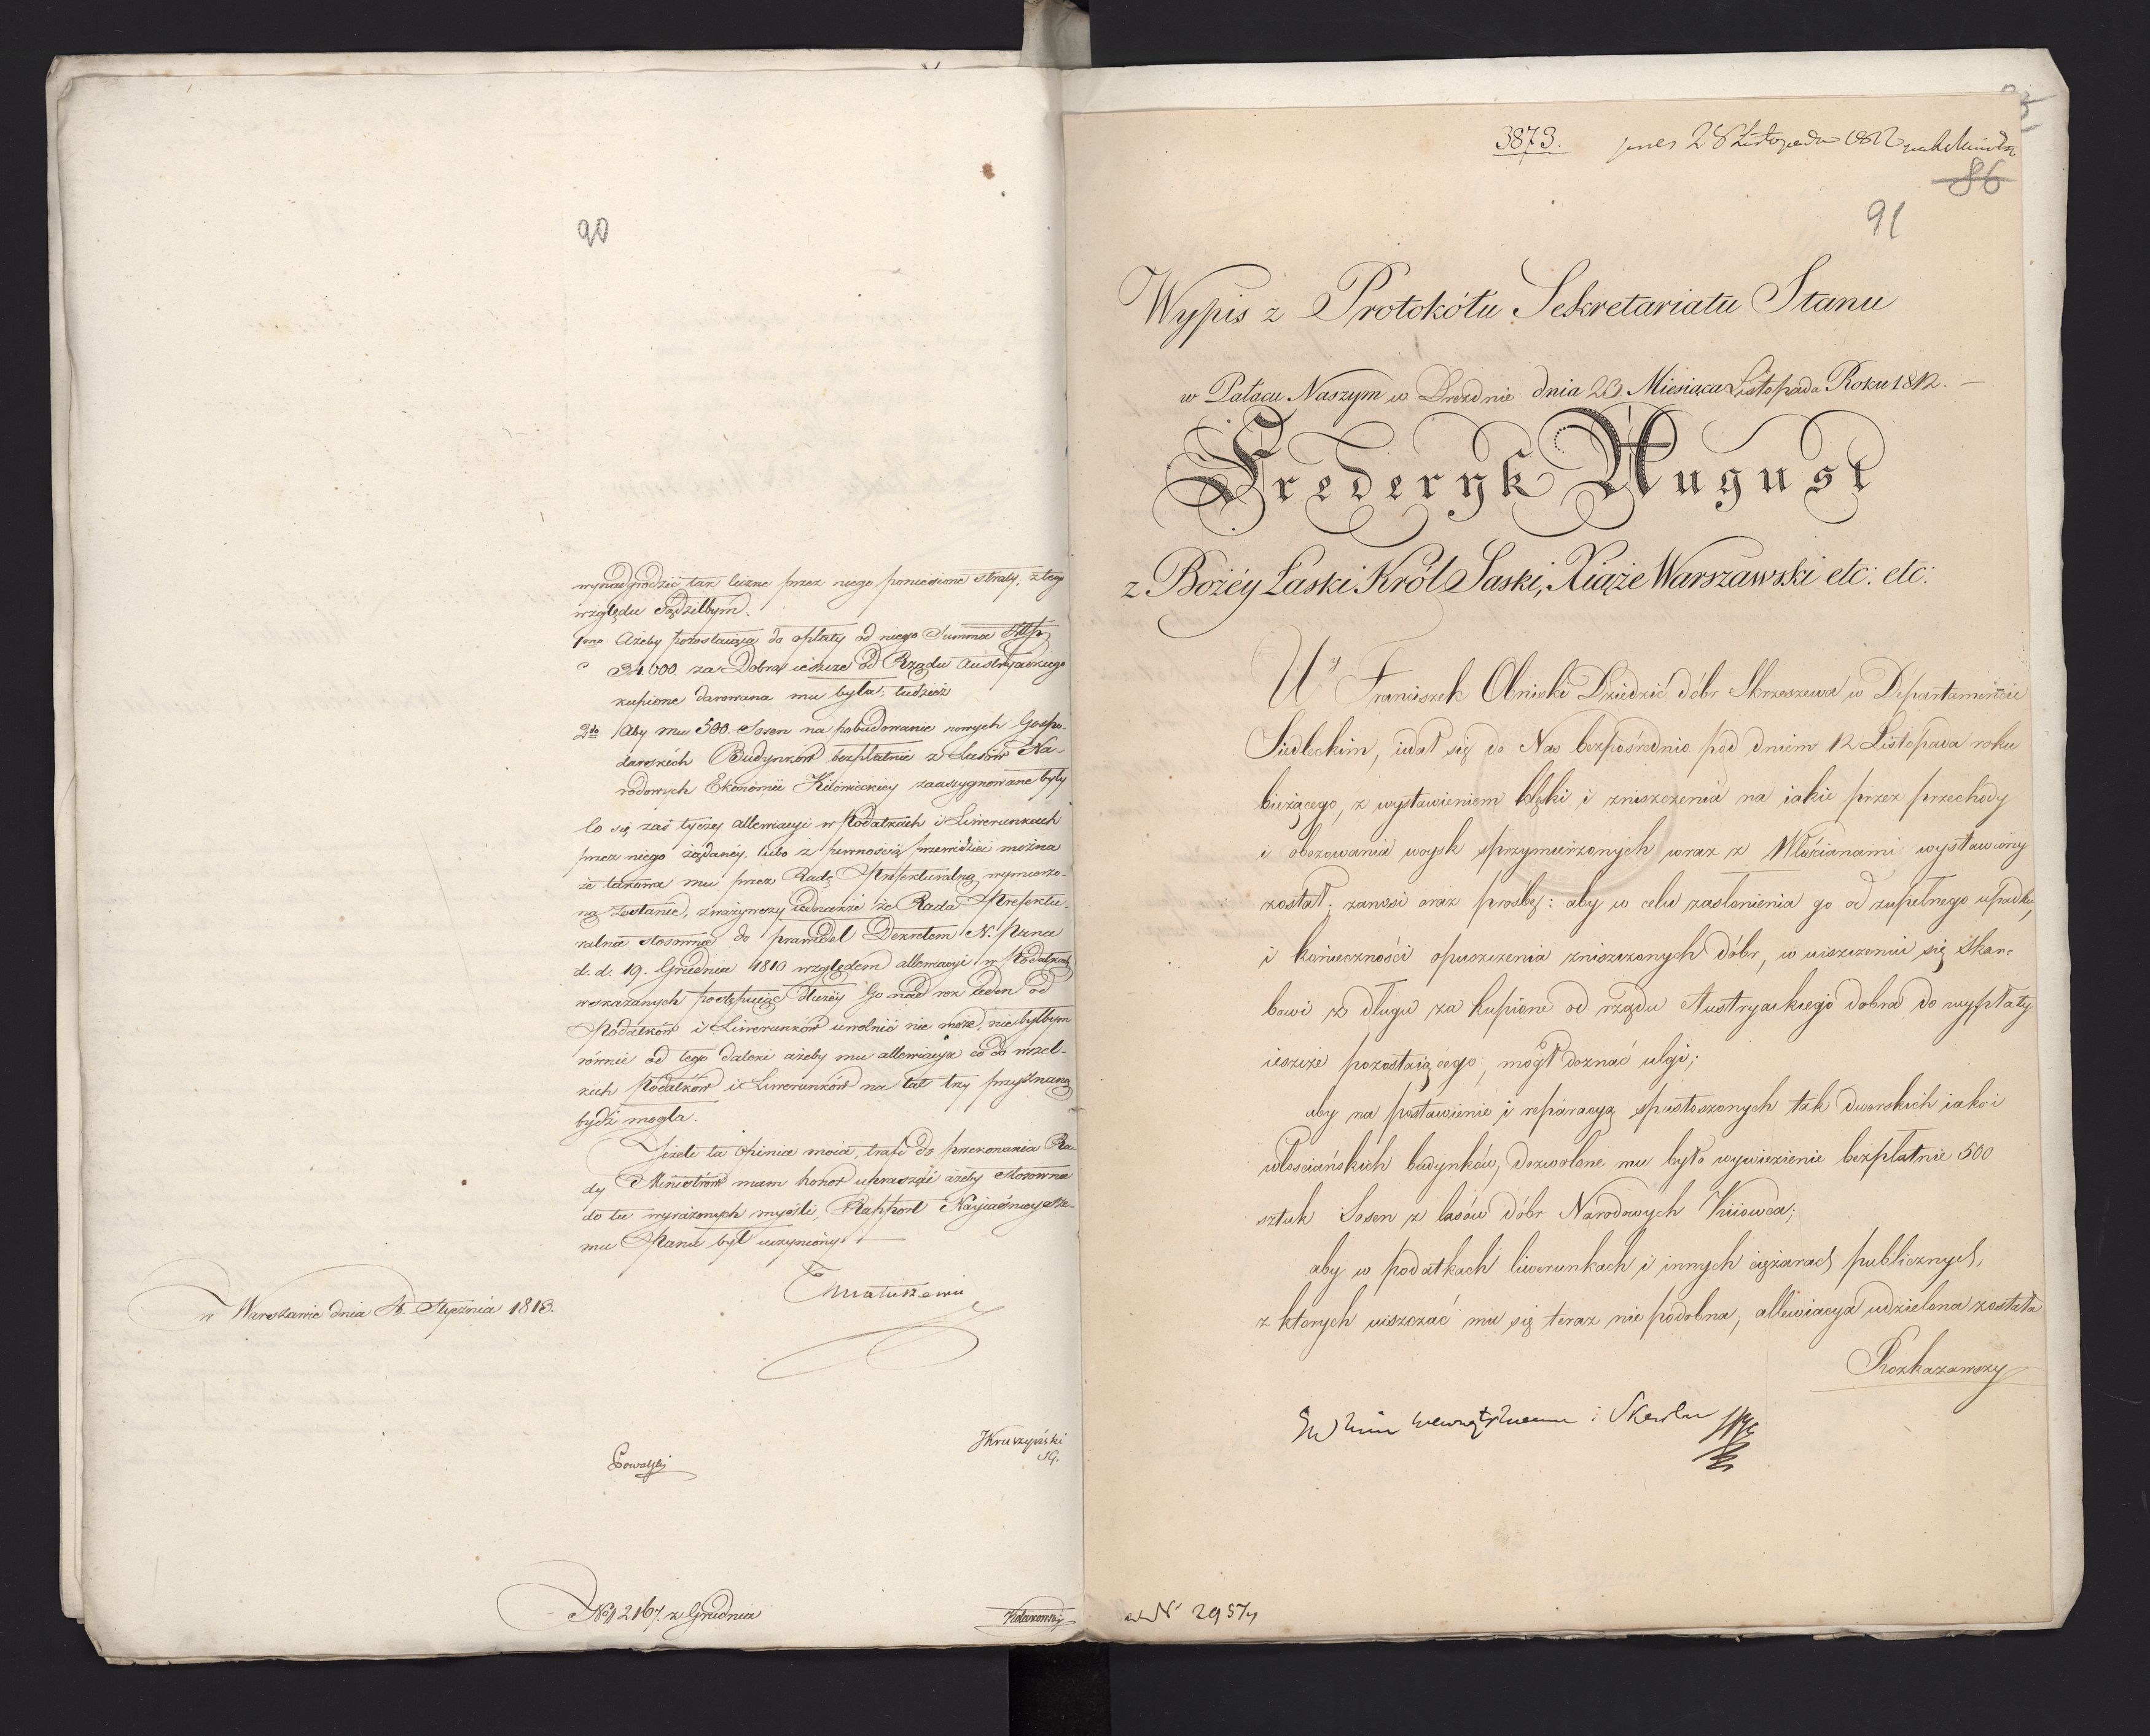 90
wynadgrodzić tak liczne przez niego poniesione straty, z tego
względu sądziłbym.
1mo Ażeby pozostaiąca do opłaty od niego Summa
34.000 za Dobra ieszcze od Rządu Austryackiego
kupione darowana mu była; tudzież
2do Aby mu 500 Sosen na pobudowanie nowych Gospo-
darskich Budynków bezpłatnie z Lasów Na-
rodowych Ekonomii Kiiowieckiey zaassygnowane były
Co się zaś tyczy allewiacyi w Podatkach i Liwerunkach
przez niego żądanéy, lubo z pewnością przewidzieć można
że takowa mu przez Radę Prefekturalną wymierzo-
ną zostanie, zważywszy iednakże że Rada Prefektu-
ralna stosownie do prawideł Dekretem N. Pana
d. d. 19. Grudnia 1810 względem allewiacyi w Podatkach
wskazanych postępuiąc dłużéy Go nad rok ieden od
Podatków i Liwerunków uwolnić nie może, nie byłbym
równie od tego daleki ażeby mu allewiacya co do wszel-
kich Podatków i Liwerunków na lat trzy przyznaną
bydź mogła.
Jeżeli ta Opinia moia, trafi do przekonania Ra-
dy Ministrów mam honor upraszać ażeby stosownie
do tu wyrażonych myśli, Rapport Nayiaśnieysze-
mu Panu był uczyniony.
w Warszawie dnia Stycznia 1813.
Matuszewic
JKruszyński
SG.
Kowalski
No 12167. z Grudnia
3873. 28 Listopada 1812
86
91
Wypis z Protokółu Sekretariatu Stanu
w Pałacu Naszym w Dreźnie dnia 23. Miesiąca Listopada Roku 1812.
Fryderyk August
z Bożéy Łaski Król Saski, Xiąże Warszawski etc: etc:
Ur Franciszek Obnicki Dziedzic dóbr Skrzeszewa w Departamencie
Siedleckim, udał się do Nas bezpośrednio pod dniem 12 Listopada roku
bieżącego, z wystawieniem klęski i zniszczenia na iakie przez przechody
i obozowania woysk sprzymierzonych wraz z Włościanami wystawiony
został; zanosi oraz prośbę: aby w celu zasłonienia go od zupełnego upadku,
i konieczności opuszczenia zniszczonych dóbr, w uiszczeniu się Skar-
bowi z długu za kupione od rządu Austryackiego dobra do wypłaty
ieszcze pozostaiącego, mógł doznać ulgi;
aby na postawienie i reparacyą spustoszonych tak dworskich iako i
włościańskich budynków, dozwolone mu było wywiezienie bezpłatnie 500
sztuk Sosen z lasów dóbr Narodowych Kiiowca;
aby w podatkach liwerunkach i innych ciężarach publicznych,
z których uiszczać mu się teraz nie podobna, allewiacya udzielona została
Rozkazawszy
wewnętrznemu i Skarbu
ad No 2957